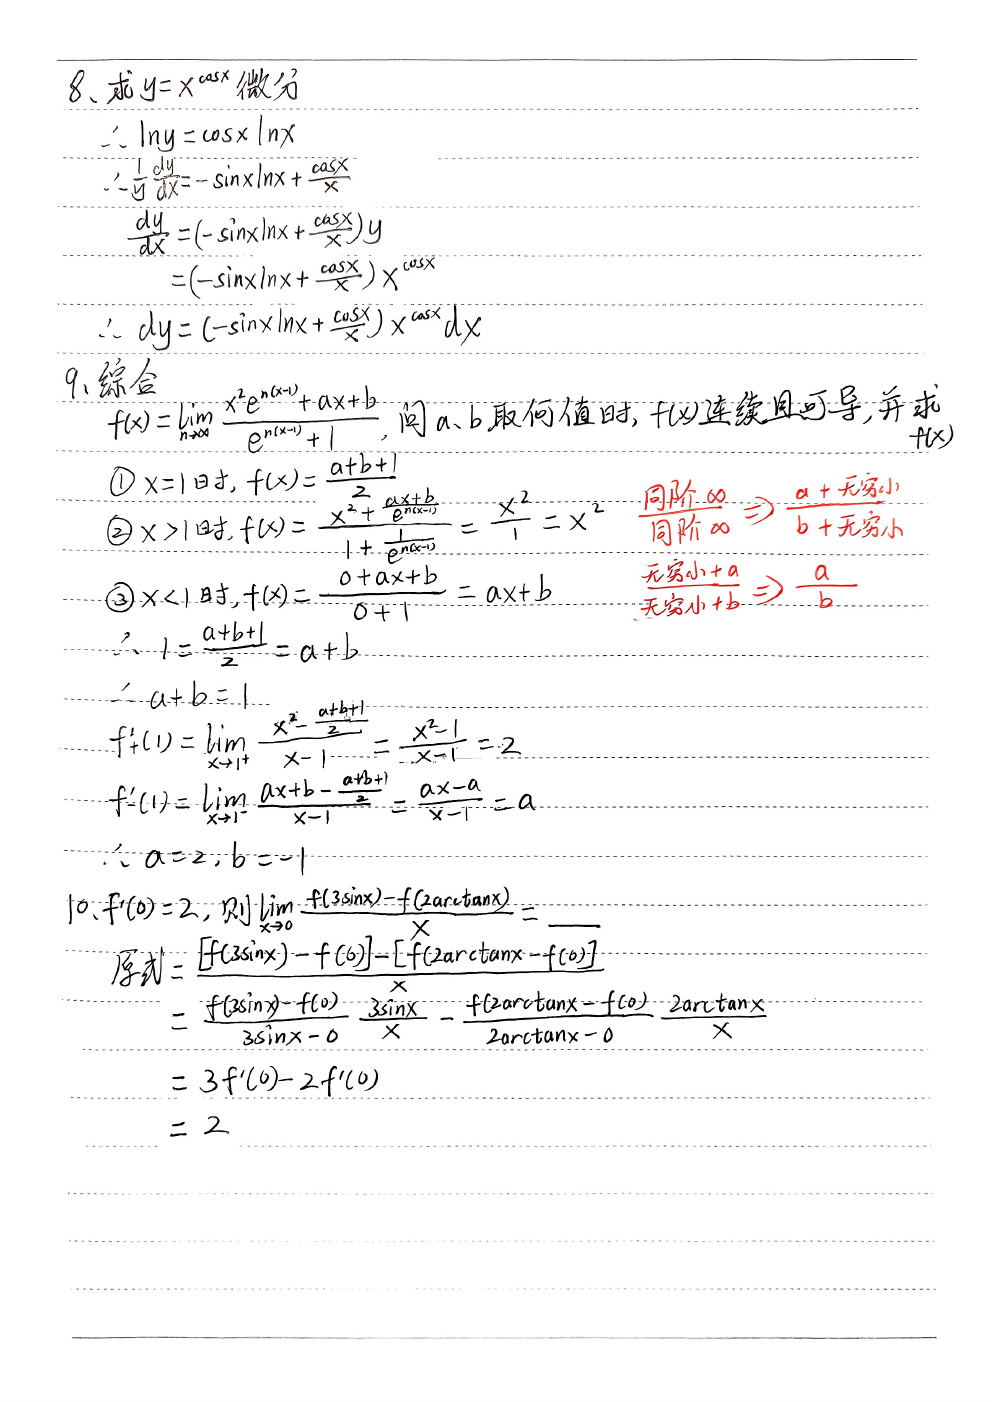 8、求 y = x^cosx 微分
∴ lny = cosx lnx
∴ 1/y dy/dx = -sinxlnx + cosx/x
dy/dx = (-sinxlnx + cosx/x)y
= (-sinxlnx + cosx/x) x^cosx
∴ dy = (-sinxlnx + cosx/x) x^cosx dx
9、综合
f(x) = lim n→∞ (x²e^n(x-1) + ax + b)/(e^n(x-1) + 1), 问a、b取何值时, f(x)连续且可导, 并求
f(x)
① x=1时, f(x) = (a+b+1)/2
② x>1时, f(x) = (x² + (ax+b)/e^n(x-1))/(1 + 1/e^n(x-1)) = x²/1 = x²
同阶∞/同阶∞ ⇒ (a+无穷小)/(b+无穷小)
③ x<1时, f(x) = (0+ax+b)/(0+1) = ax+b
(无穷小+a)/(无穷小+b) ⇒ a/b
∴ 1 = (a+b+1)/2 = a+b
∴ a+b = 1
f'₊(1) = lim x→1⁺ (x² - (a+b+1)/2)/(x-1) = (x²-1)/(x-1) = 2
f'₋(1) = lim x→1⁻ (ax+b - (a+b+1)/2)/(x-1) = (ax-a)/(x-1) = a
∴ a=2, b=-1
10、f'(0)=2, 则 lim x→0 (f(3sinx)-f(2arctanx))/x = ___
原式 = ([f(3sinx)-f(0)]-[f(2arctanx-f(0)])/x
= (f(3sinx)-f(0))/(3sinx-0) 3sinx/x - (f(2arctanx-f(0))/(2arctanx-0) 2arctanx/x
= 3f'(0)-2f'(0)
= 2